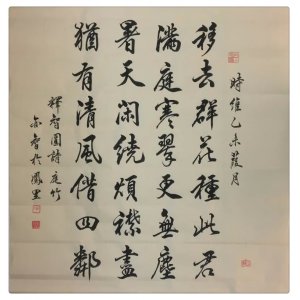 時維乙未葭月
移去群花種此君
滿庭寒翠更無塵
暑天閑繞煩襟盡
猶有清風借四鄰
釋智圓詩庭竹
智於鳳里